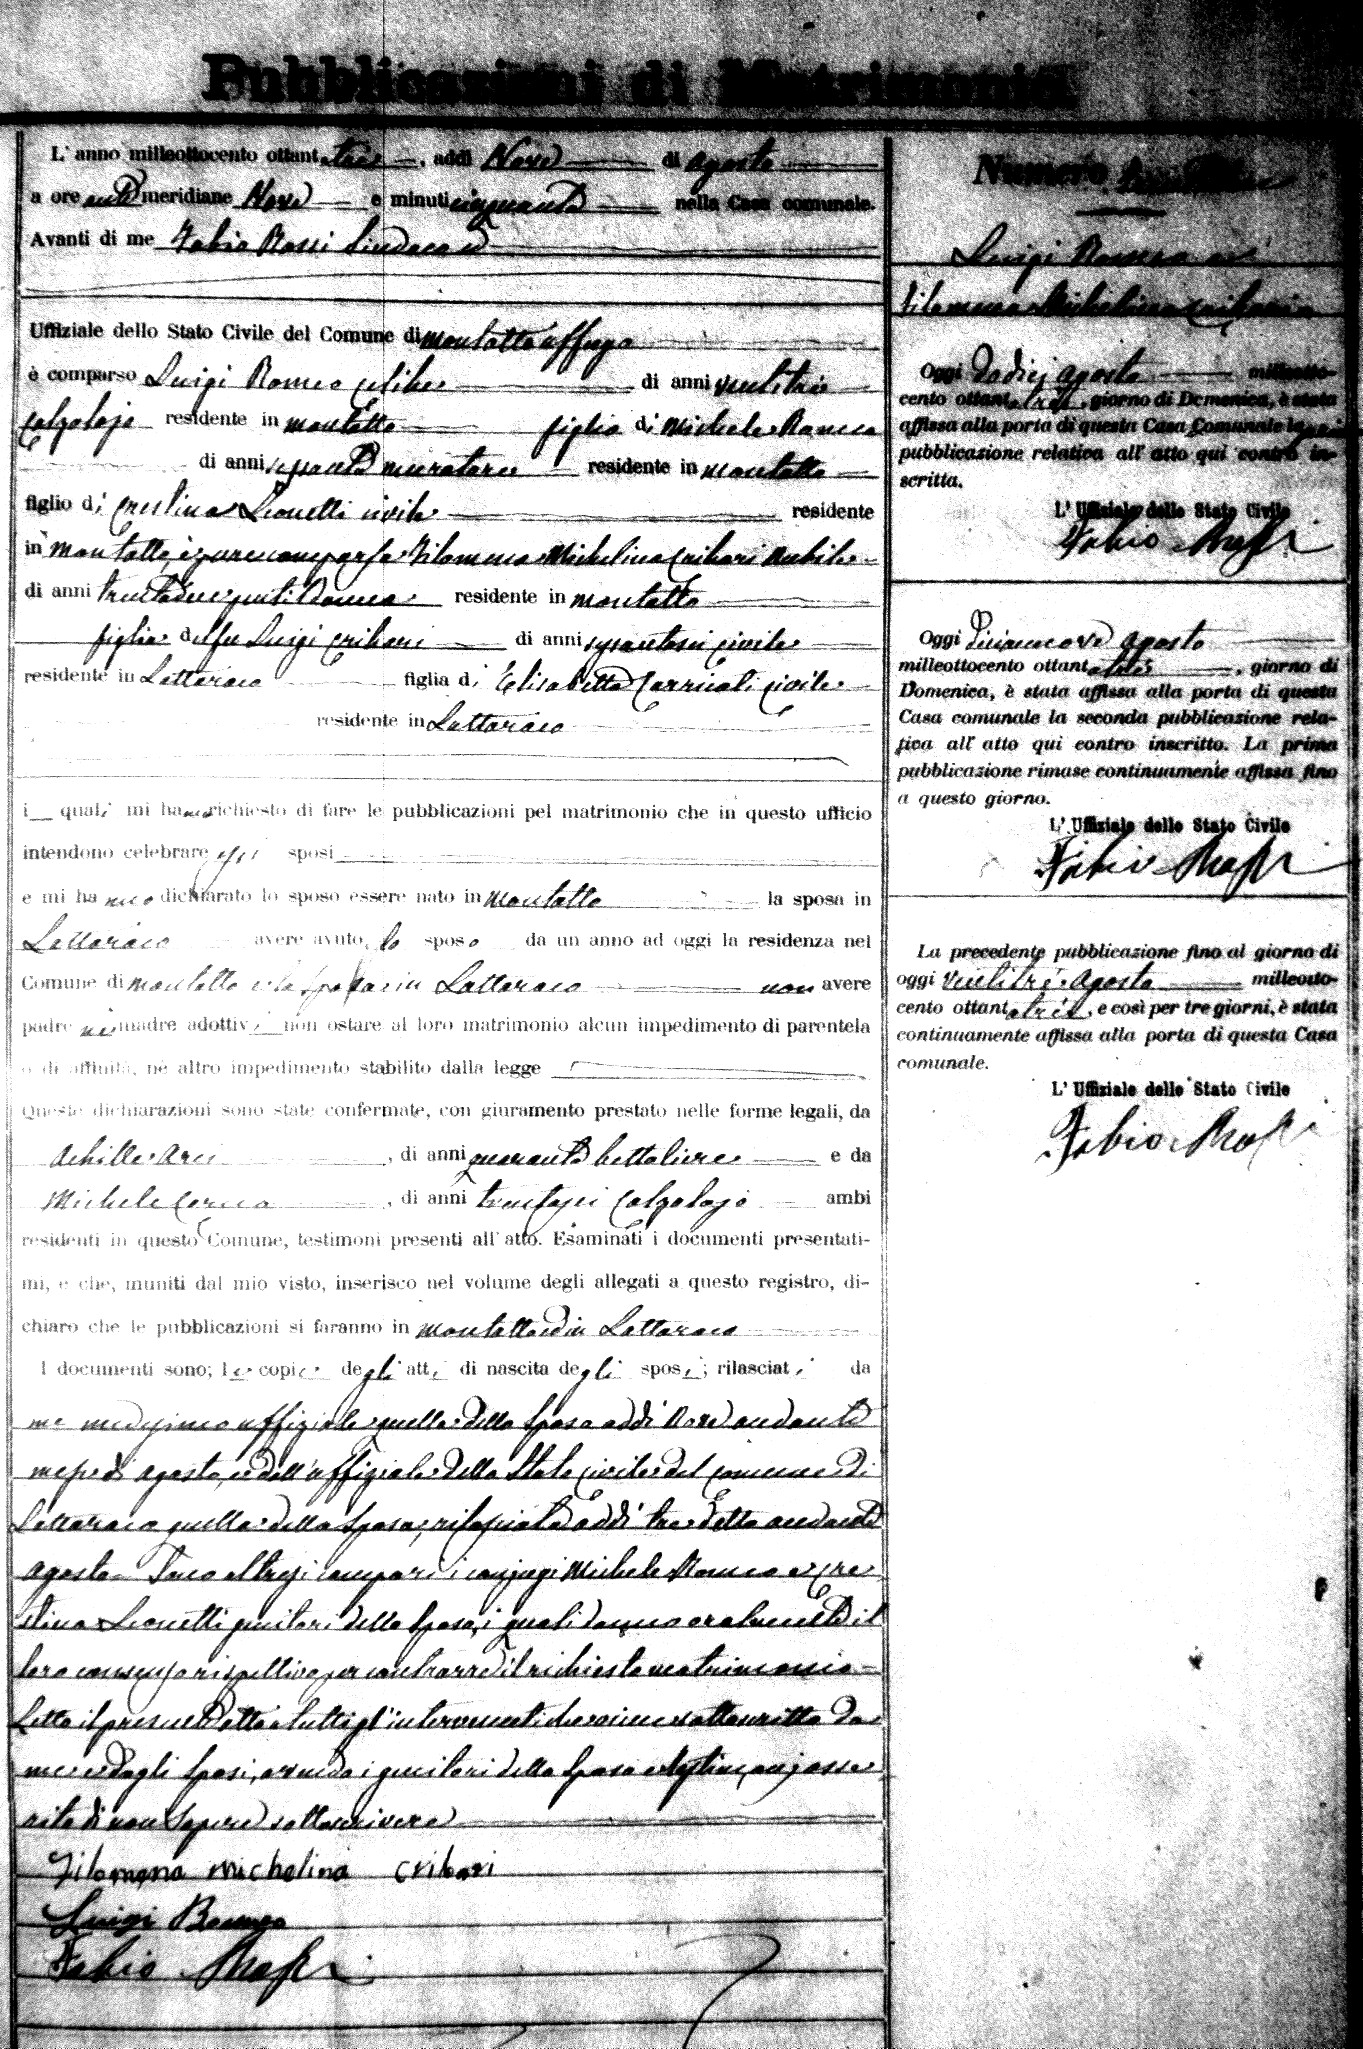 Pubblicazioni di Matrimonio
L'anno milleottocento ottantatre, addì Nove di agosto
a ore anti meridiane Nove e minuti cinquanta nella Casa comunale.
Avanti di me Fabio Rossi Sindaco ed
Uffiziale dello Stato Civile del Comune di montalto uffugo
è comparso Luigi Romeo celibe di anni ventitre
calzolajo residente in montalto figlio di Michele Romeo
di anni sessanta muratore residente in montalto
figlio di Crestina Leonetti civile residente
in montalto, è pure comparsa Filomena Michelina Cribari Nubile
di anni trentadue gentildonna residente in montalto
figlia del fu Luigi Cribari di anni civile
residente in Lattaraco figlia di Elisabetta civile
residente in Lattaraco
i quali mi hanno richiesto di fare le pubblicazioni pel matrimonio che in questo ufficio
intendono celebrare essi sposi
e mi hanno dichiarato lo sposo essere nato in montalto la sposa in
Lattaraco avere avuto, lo sposo da un anno ad oggi la residenza nel
Comune di montalto e la sposa in Lattaraco non avere
padre nè madre adottivi non ostare al loro matrimonio alcun impedimento di parentela
o di affinità, nè altro impedimento stabilito dalla legge
Queste dichiarazioni sono state confermate, con giuramento prestato nelle forme legali, da
Achille Arci, di anni quaranta bettoliere e da
Michele, di anni trentasei calzolajo ambi
residenti in questo Comune, testimoni presenti all'atto. Esaminati i documenti presentati-
mi, e che, muniti dal mio visto, inserisco nel volume degli allegati a questo registro, di-
chiaro che le pubblicazioni si faranno in montalto ed in Lattaraco
I documenti sono; le copie degli atti di nascita degli sposi; rilasciati da
me medesimo uffiziale quella dello sposo addì Nove andante
mese di agosto, e dall'uffiziale dello Stato civile del comune di
Lattaraco quella della sposa, rilasciata addì tre detto andante
agosto. Sono altresì comparsi i conjugi Michele Romeo e Cre
stina Leonetti genitori dello sposo, i quali danno oralmente il
loro consenso rispettivo per contrarre il richiesto matrimonio
Letto il presente atto a tutti gl'intervenuti che viene sottoscritto da
me e dagli sposi, avendo i genitori dello sposo e testimonj asse
rito di non sapere sottoscrivere
Filomena michelina cribari
Luigi Romeo
Fabio Rossi
Numero
Luigi Romeo con
Filomena Michelina Cribari
Oggi Dodici agosto milleotto-
cento ottantatre, giorno di Domenica, è stata
affissa alla porta di questa Casa Comunale la prima
pubblicazione relativa all'atto qui contro in-
scritta.
L'Uffiziale dello Stato Civile
Fabio Rossi
Oggi Diciannove agosto
milleottocento ottantatre, giorno di
Domenica, è stata affissa alla porta di questa
Casa comunale la seconda pubblicazione rela-
tiva all'atto qui contro inscritto. La prima
pubblicazione rimase continuamente affissa fino
a questo giorno.
L'Uffiziale dello Stato Civile
Fabio Rossi
La precedente pubblicazione fino al giorno di
oggi ventitre agosto milleotto-
cento ottantatre, e così per tre giorni, è stata
continuamente affissa alla porta di questa Casa
comunale.
L'Uffiziale dello Stato Civile
Fabio Rossi